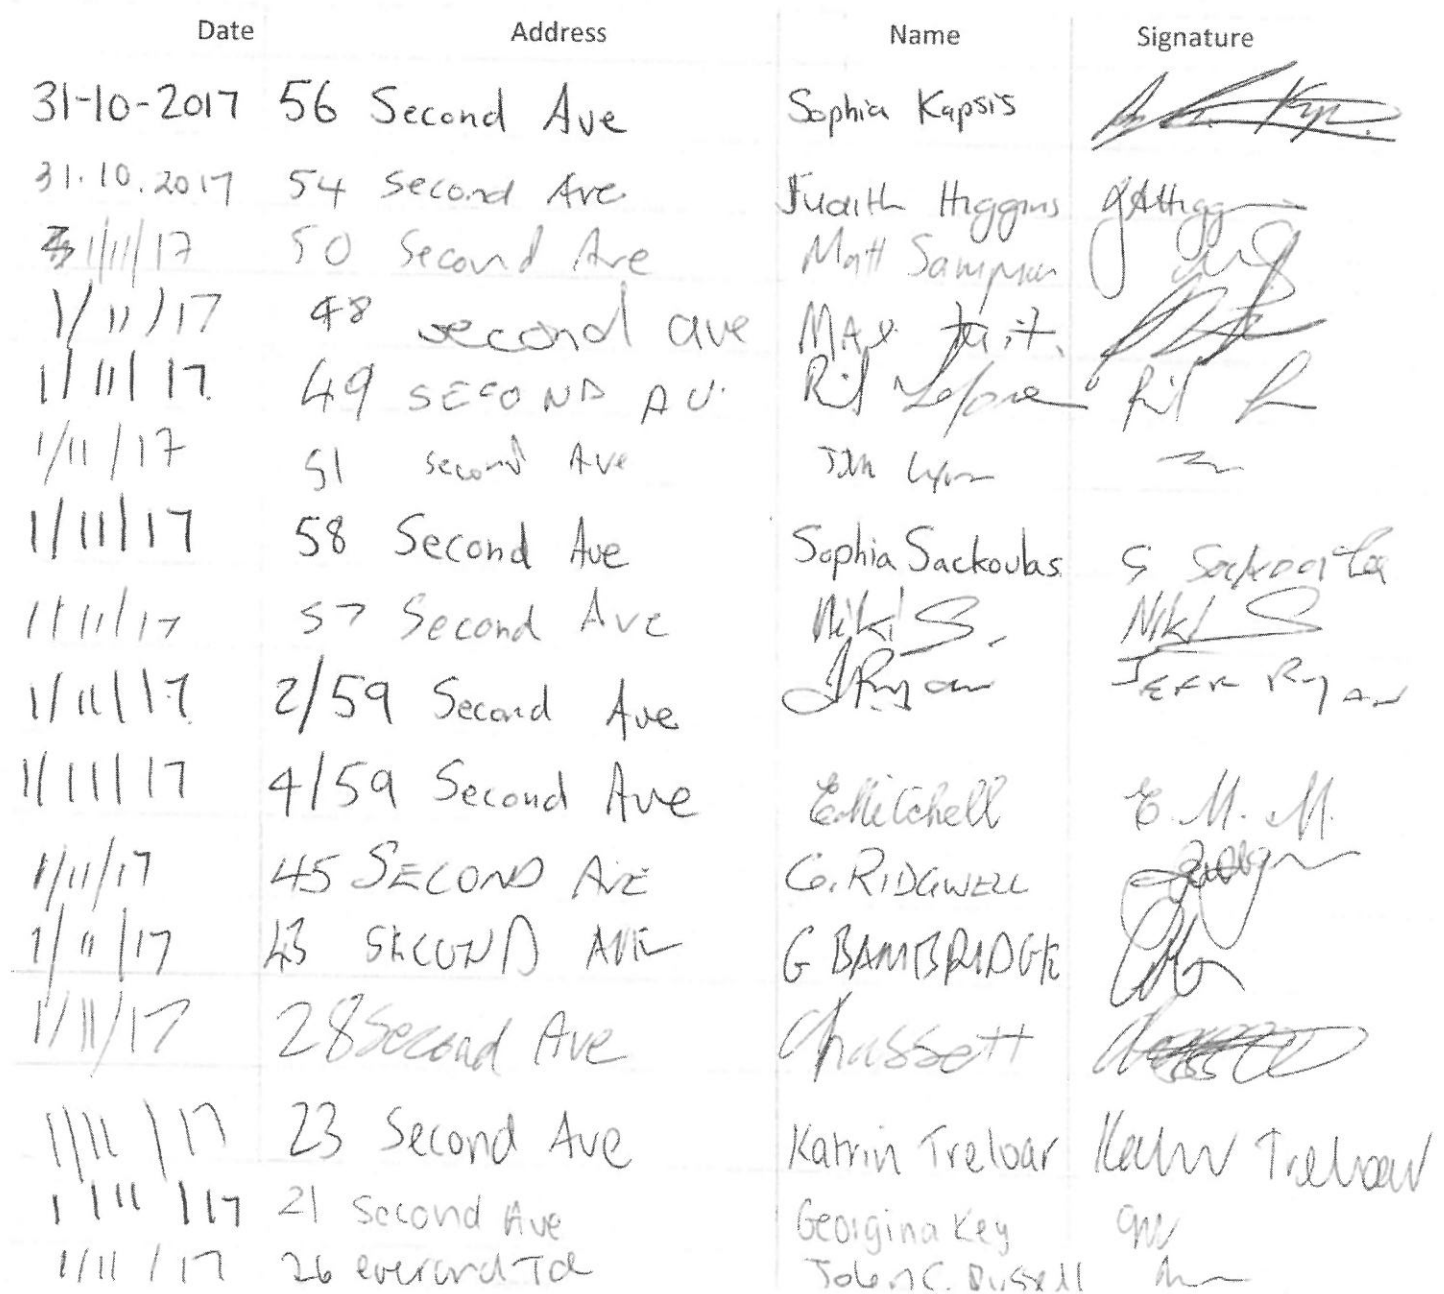 Date Address Name Signature
31-10-2017 56 Second Ave Sophia Kapsis
31.10.2017 54 Second Ave Judith Higgins JAHigg
1/11/17 50 Second Ave Matt Sampson
1/11/17 48 second ave MAX tait.
1/11/17 49 SECOND AV
1/11/17 51 second Ave
1/11/17 58 Second Ave Sophia Sackoulas S
1/11/17 57 Second Ave Niki S. Niki S
1/11/17 2/59 Second Ave J Ryan JEFF RYAN
1/11/17 4/59 Second Ave E.Mitchell E. M. M.
1/11/17 45 SECOND AVE G. RIDGWELL
1/11/17 43 SECOND AVE G BAMBRIDGE
1/11/17 28 Second Ave
1/11/17 23 Second Ave Katrin Treloar Katrin Treloar
1/11/17 21 Second Ave Georgina Key
1/11/17 26 everard Tce